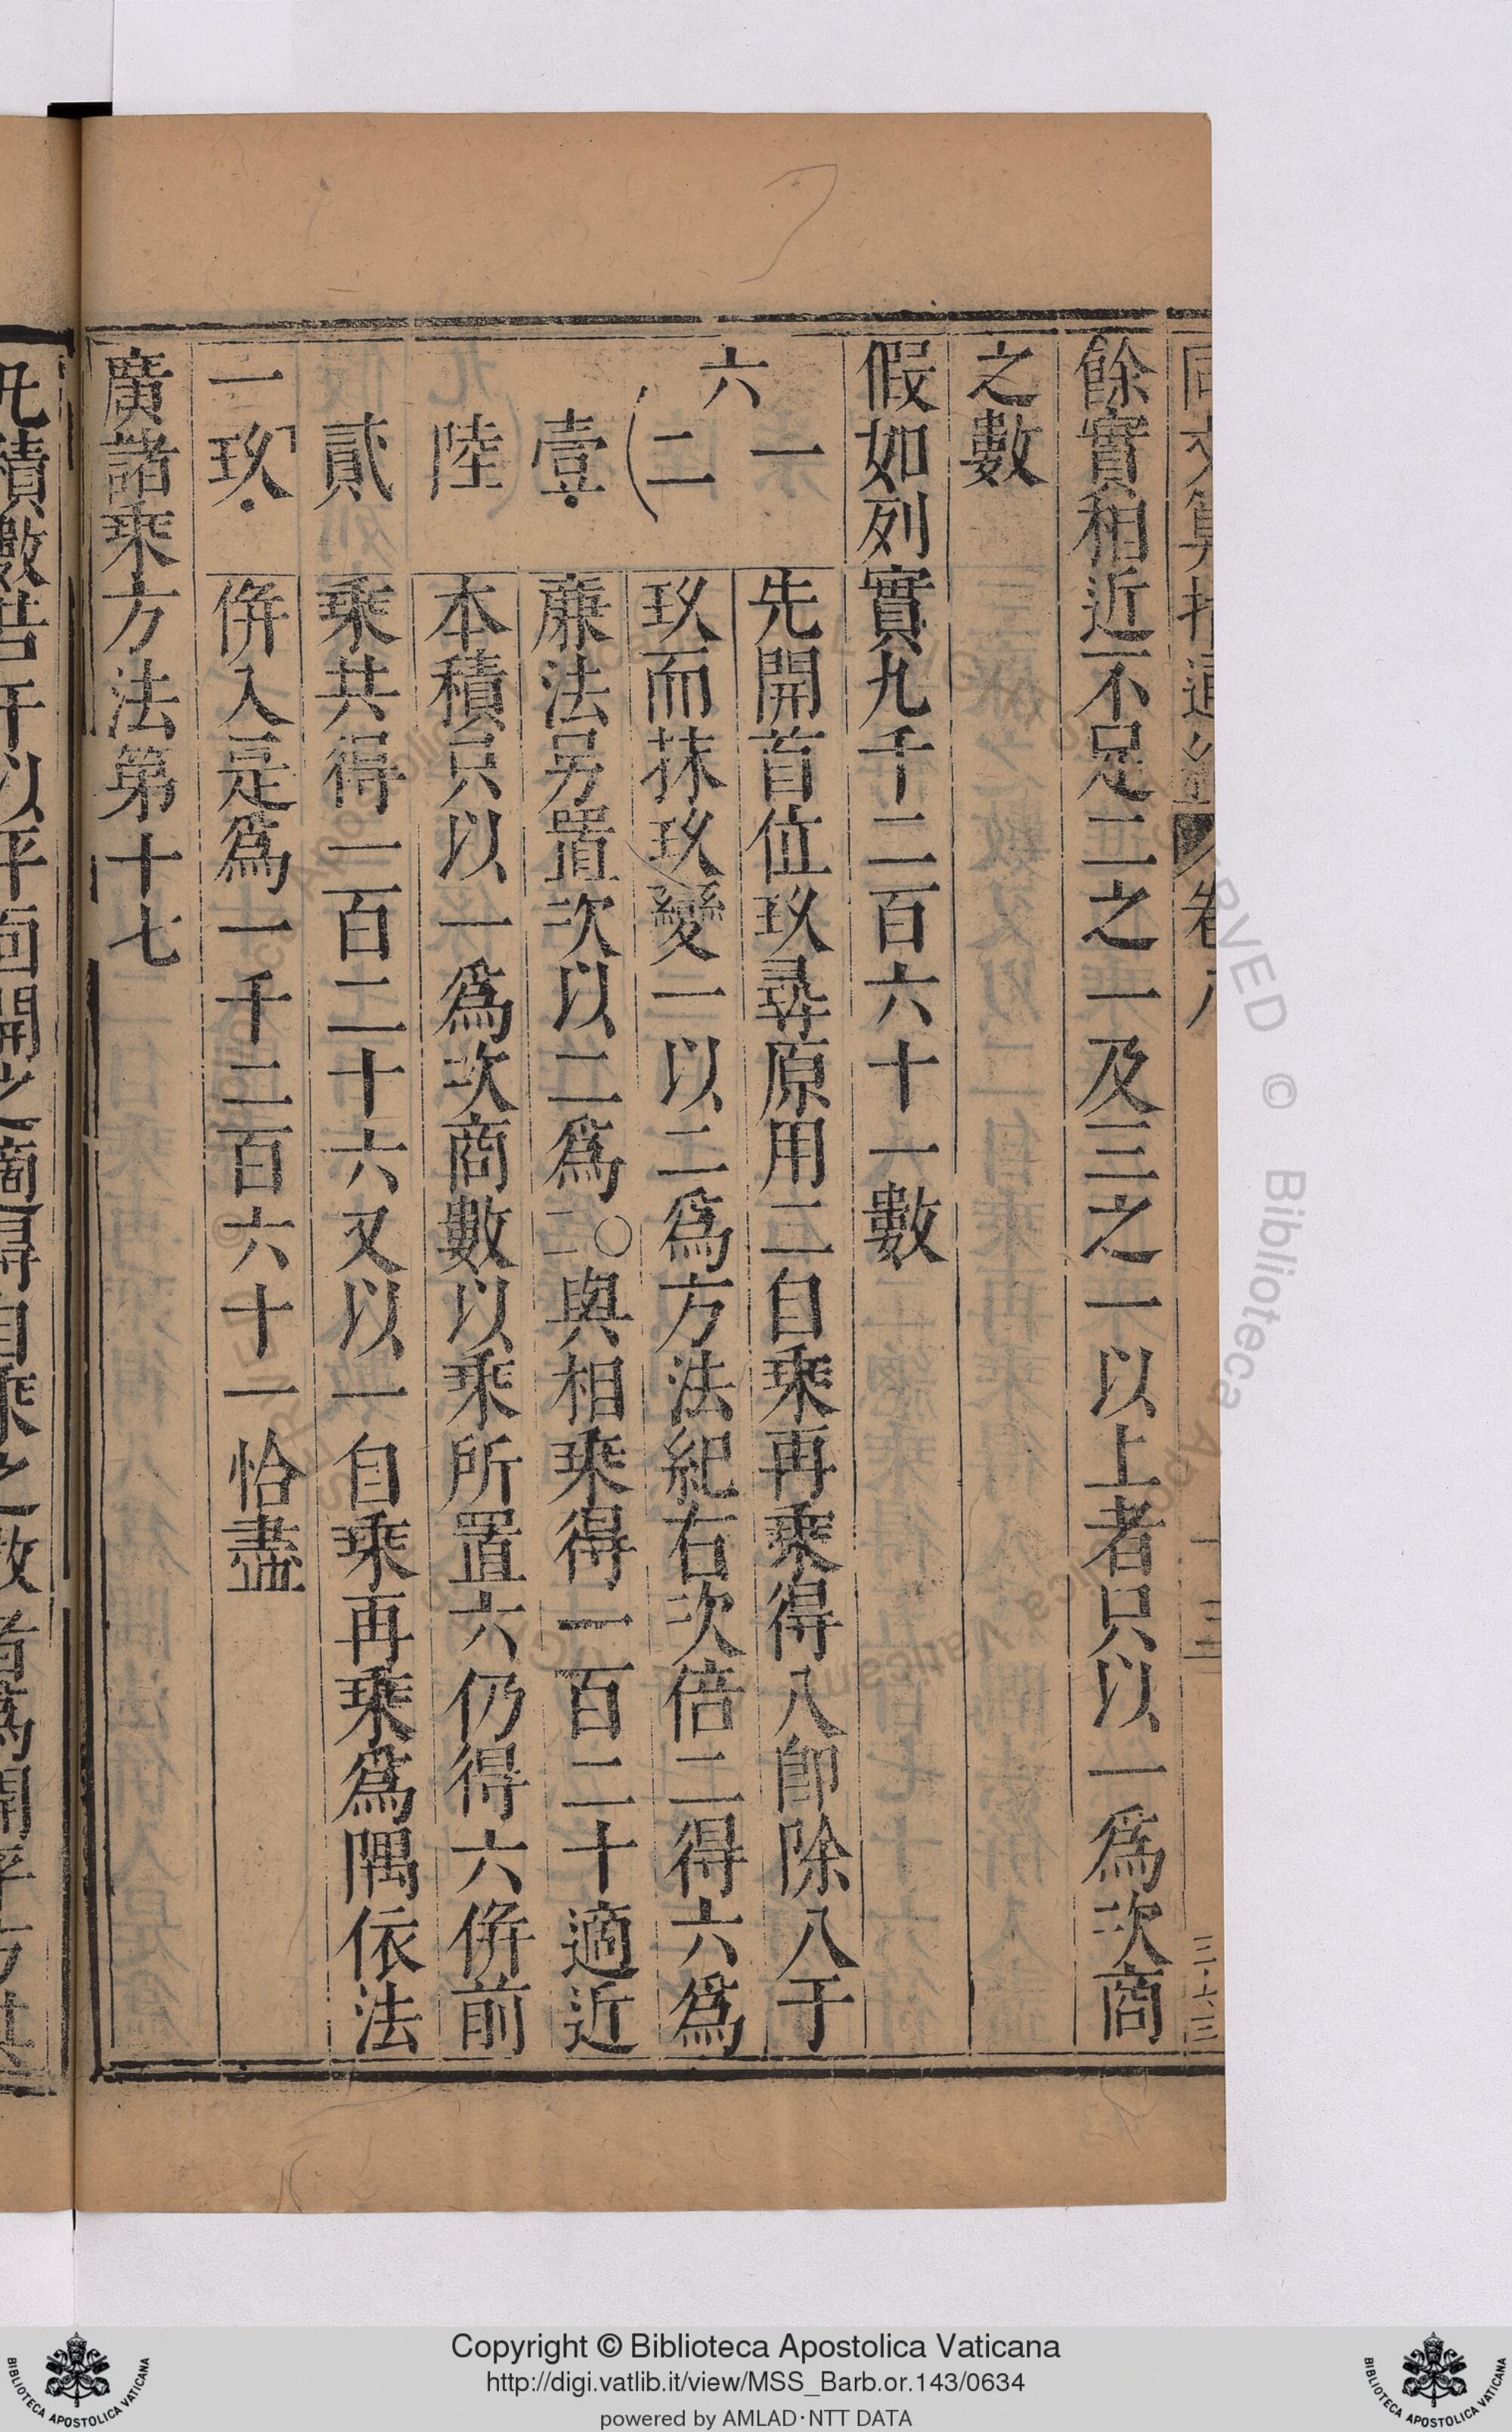 餘實相近不足二之一及三之一以上者只以一爲次商
之數
假如列實九千二百六十一數
一
六
二
壹
陸
貳
玖
一
先開首位玖尋原用二自乘再乘得八卽除八于
玖而抹玖變一以二爲方法紀右次倍二得六爲
亷法另置次以二爲二〇與相乘得一百二十適近
本積只以一爲次商數以乘所置六仍得六倂前
乘共得一百二十六又以一自乘再乘爲隅依法
倂入是爲一千二百六十一恰盡
廣諸乘方法第十七
Copyright © Biblioteca Apostolica Vaticana
http://digi.vatlib.it/view/MSS_Barb.or.143/0634
powered by AMLAD·NTT DATA
BIBLIOTECA APOSTOLICA VATICANA
BIBLIOTECA APOSTOLICA VATICANA